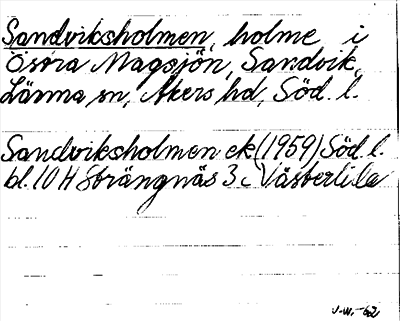 Sandviksholmen, holme i
Östra Magsjön, Sandvik,
Länna sn, Åkers hd, Söd. l.
Sandviksholmen ek (1959) Söd. l.
bl. 10 H Strängnäs 3 c Väsberlila
J.W. -62